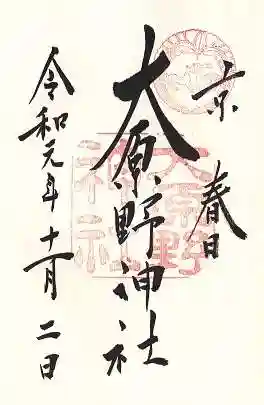 京春日
大原野神社
令和元年十一月二日
大原野
神社